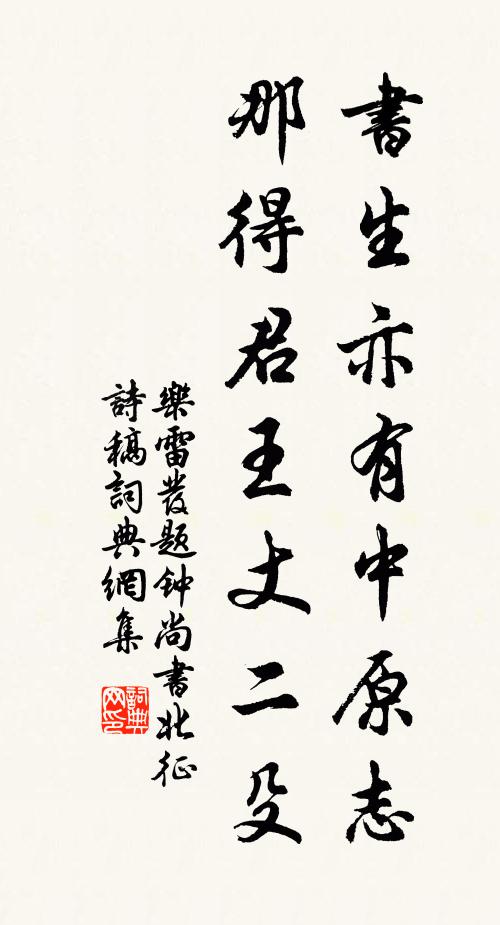 書生亦有中原志
那得君王丈二殳
樂雷發題钟尚書北征
詩稿詞典網集
詞典网印